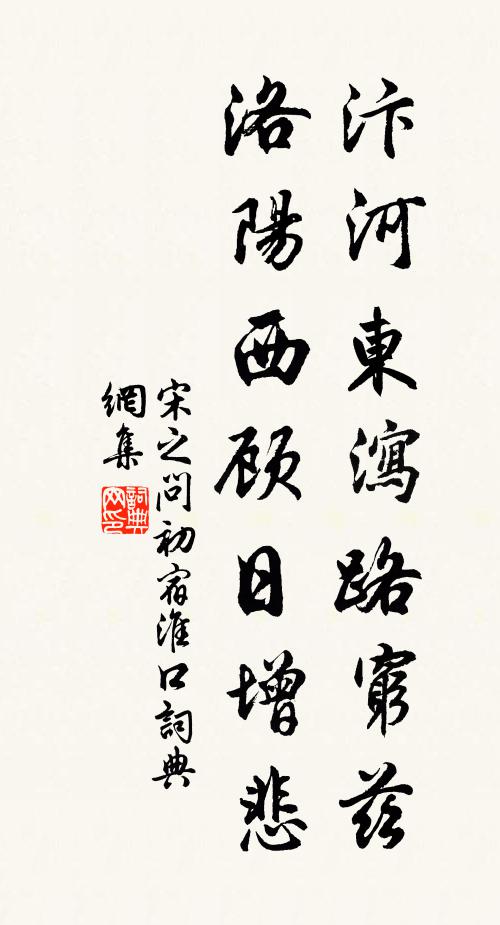 汴河東瀉路窮茲
洛陽西顾日增悲
宋之問初宿淮口詞典
網集
詞典
网印